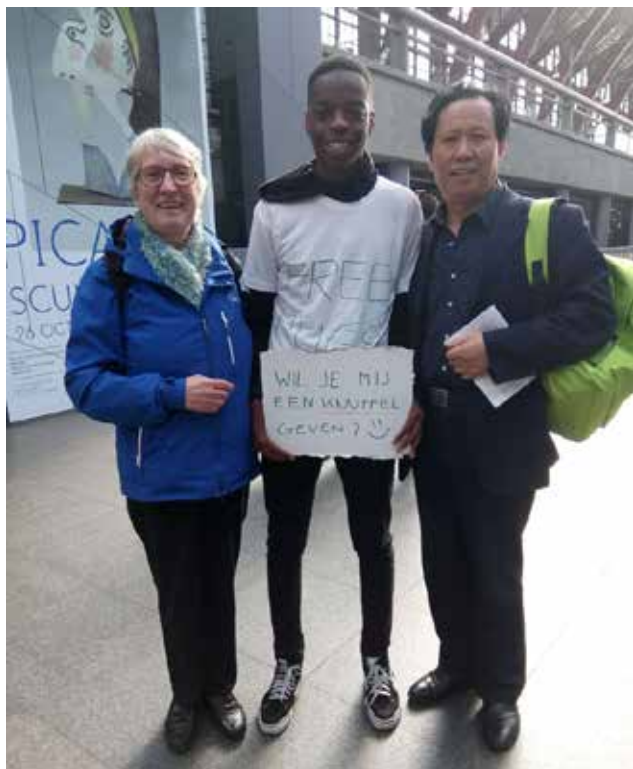 PICA
SCU
26 OCT
FREE
HUGS
WIL JE MIJ
EEN KNUFFEL
GEVEN?